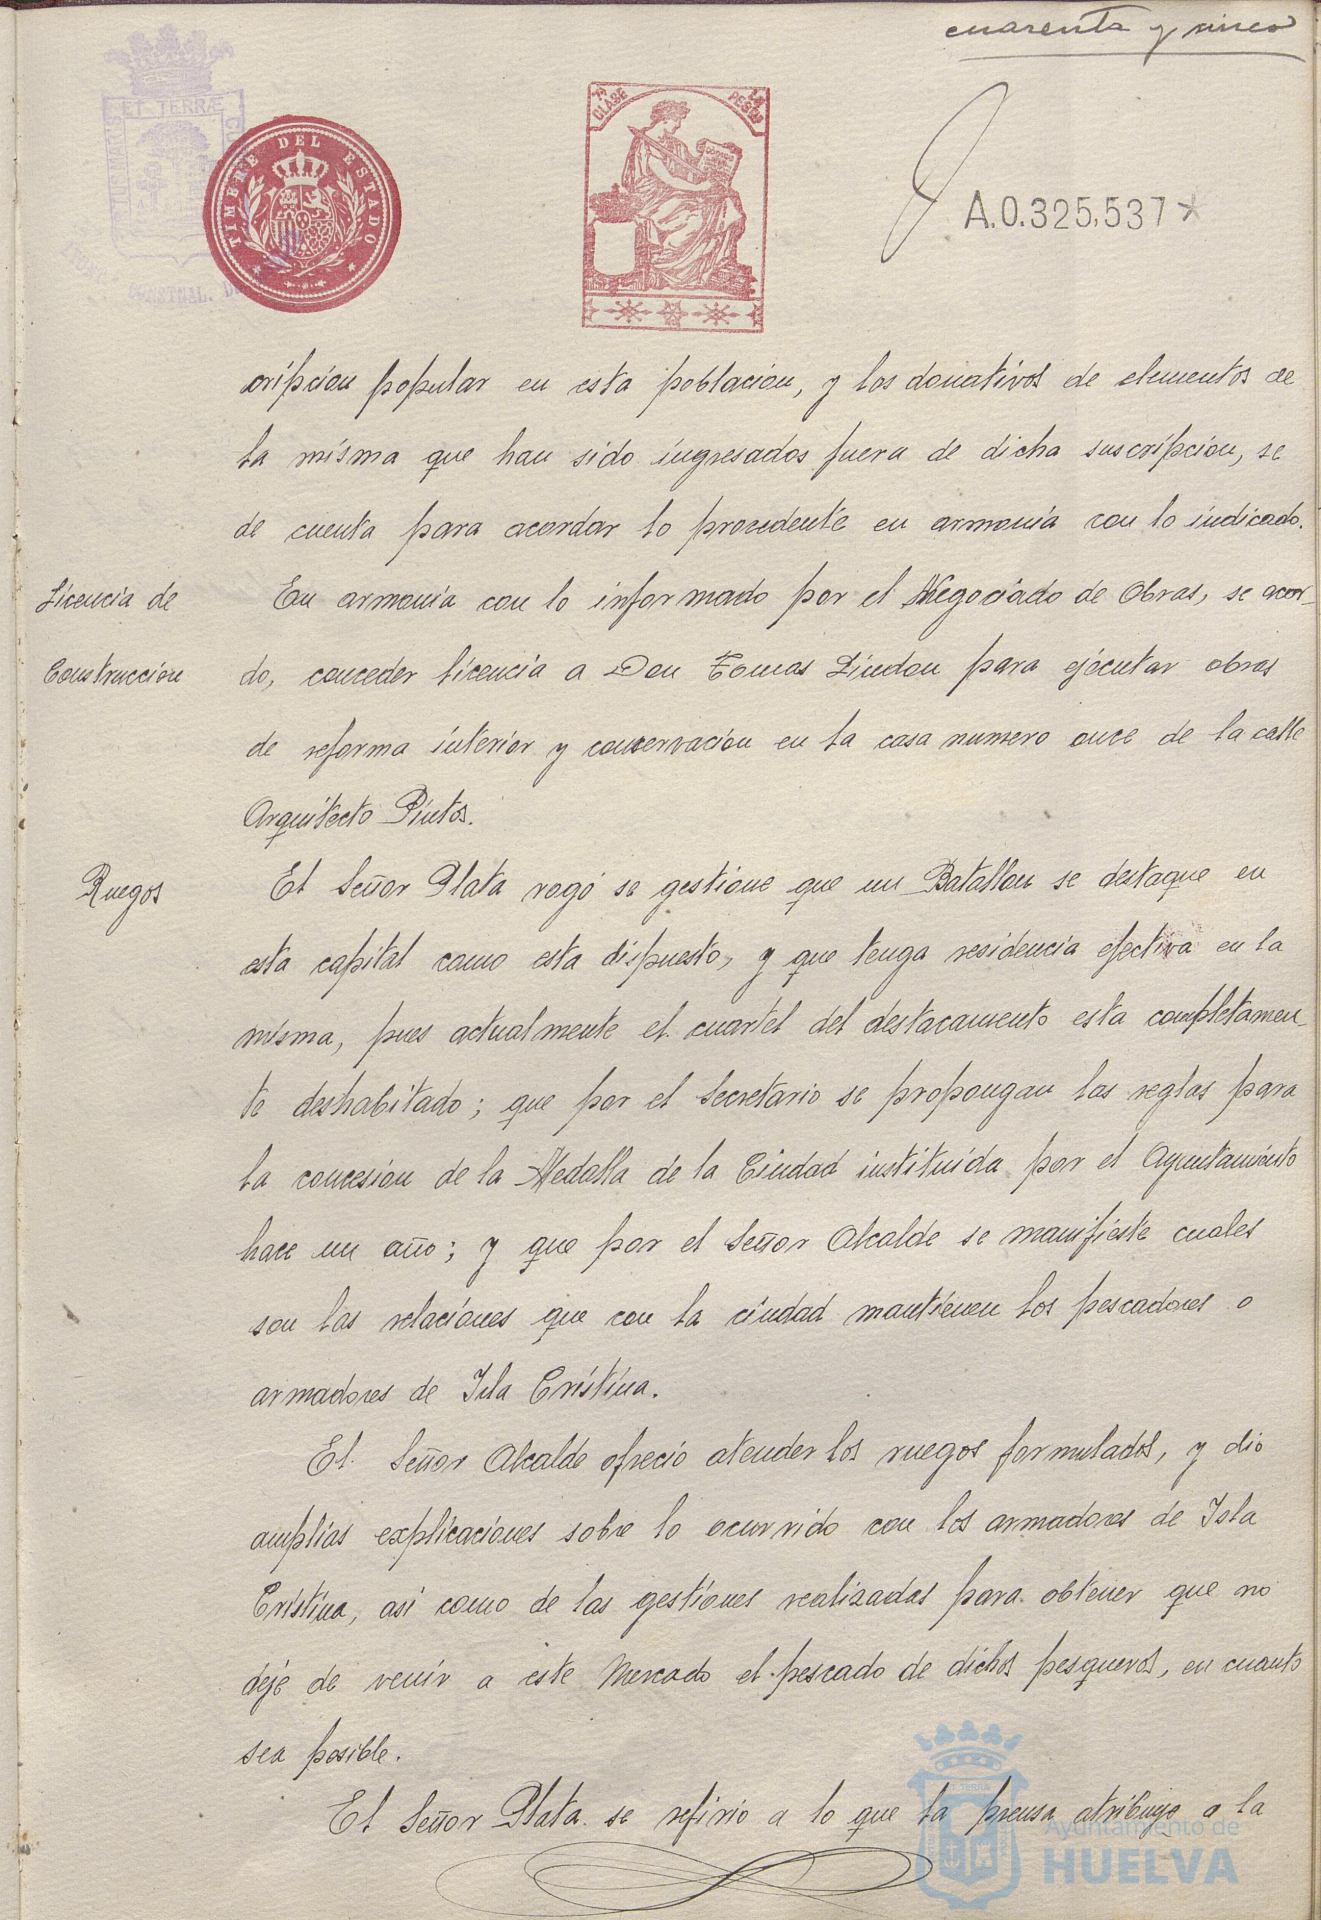 cuarenta y cinco
7ª CLASE
PESETAS
ET TERRÆ
TIMBRE DEL ESTADO
A.0.325,537*
CONSTNAL. DE
cripcion popular en esta poblacion, y los donativos de elementos de
la misma que han sido ingresados fuera de dicha suscripcion, se
de cuenta para acordar lo procedente en armonia con lo indicado.
Licencia de
Construccion
En armonia con lo informado por el Negociado de Obras, se acor_
do, conceder licencia a Don Tomas Lindon para ejecutar obras
de reforma interior y conservacion en la casa numero once de la calle
Arquitecto Pintos.
Ruegos
El Señor Plata rogó se gestione que un Batallon se destaque en
esta capital como esta dispuesto, y que tenga residencia efectiva en la
misma, pues actualmente el cuartel del destacamento esta completamen_
te deshabitado; que por el Secretario se propongan las reglas para
la concesion de la Medalla de la Ciudad instituida por el Ayuntamiento
hace un año; y que por el Señor Alcalde se manifieste cuales
son las relaciones que con la ciudad mantienen los pescadores o
armadores de Isla Cristina.
El Señor Alcalde ofreció atender los ruegos formulados, y dio
amplias explicaciones sobre lo ocurrido con los armadores de Isla
Cristina, asi como de las gestiones realizadas para obtener que no
deje de venir a este Mercado el pescado de dichos pesqueros, en cuanto
sea posible.
El Señor Plata se refirio a lo que la prensa atribuye a la
Ayuntamiento de
HUELVA